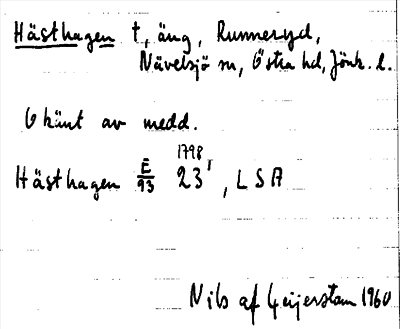 Hästhagen t, äng, Runneryd,
Nävelsjö sn, Östra hd, Jönk. l.
Okänt av medd.
1798
Hästhagen E/93 23, LSA
Nils af Geijerstam 1960